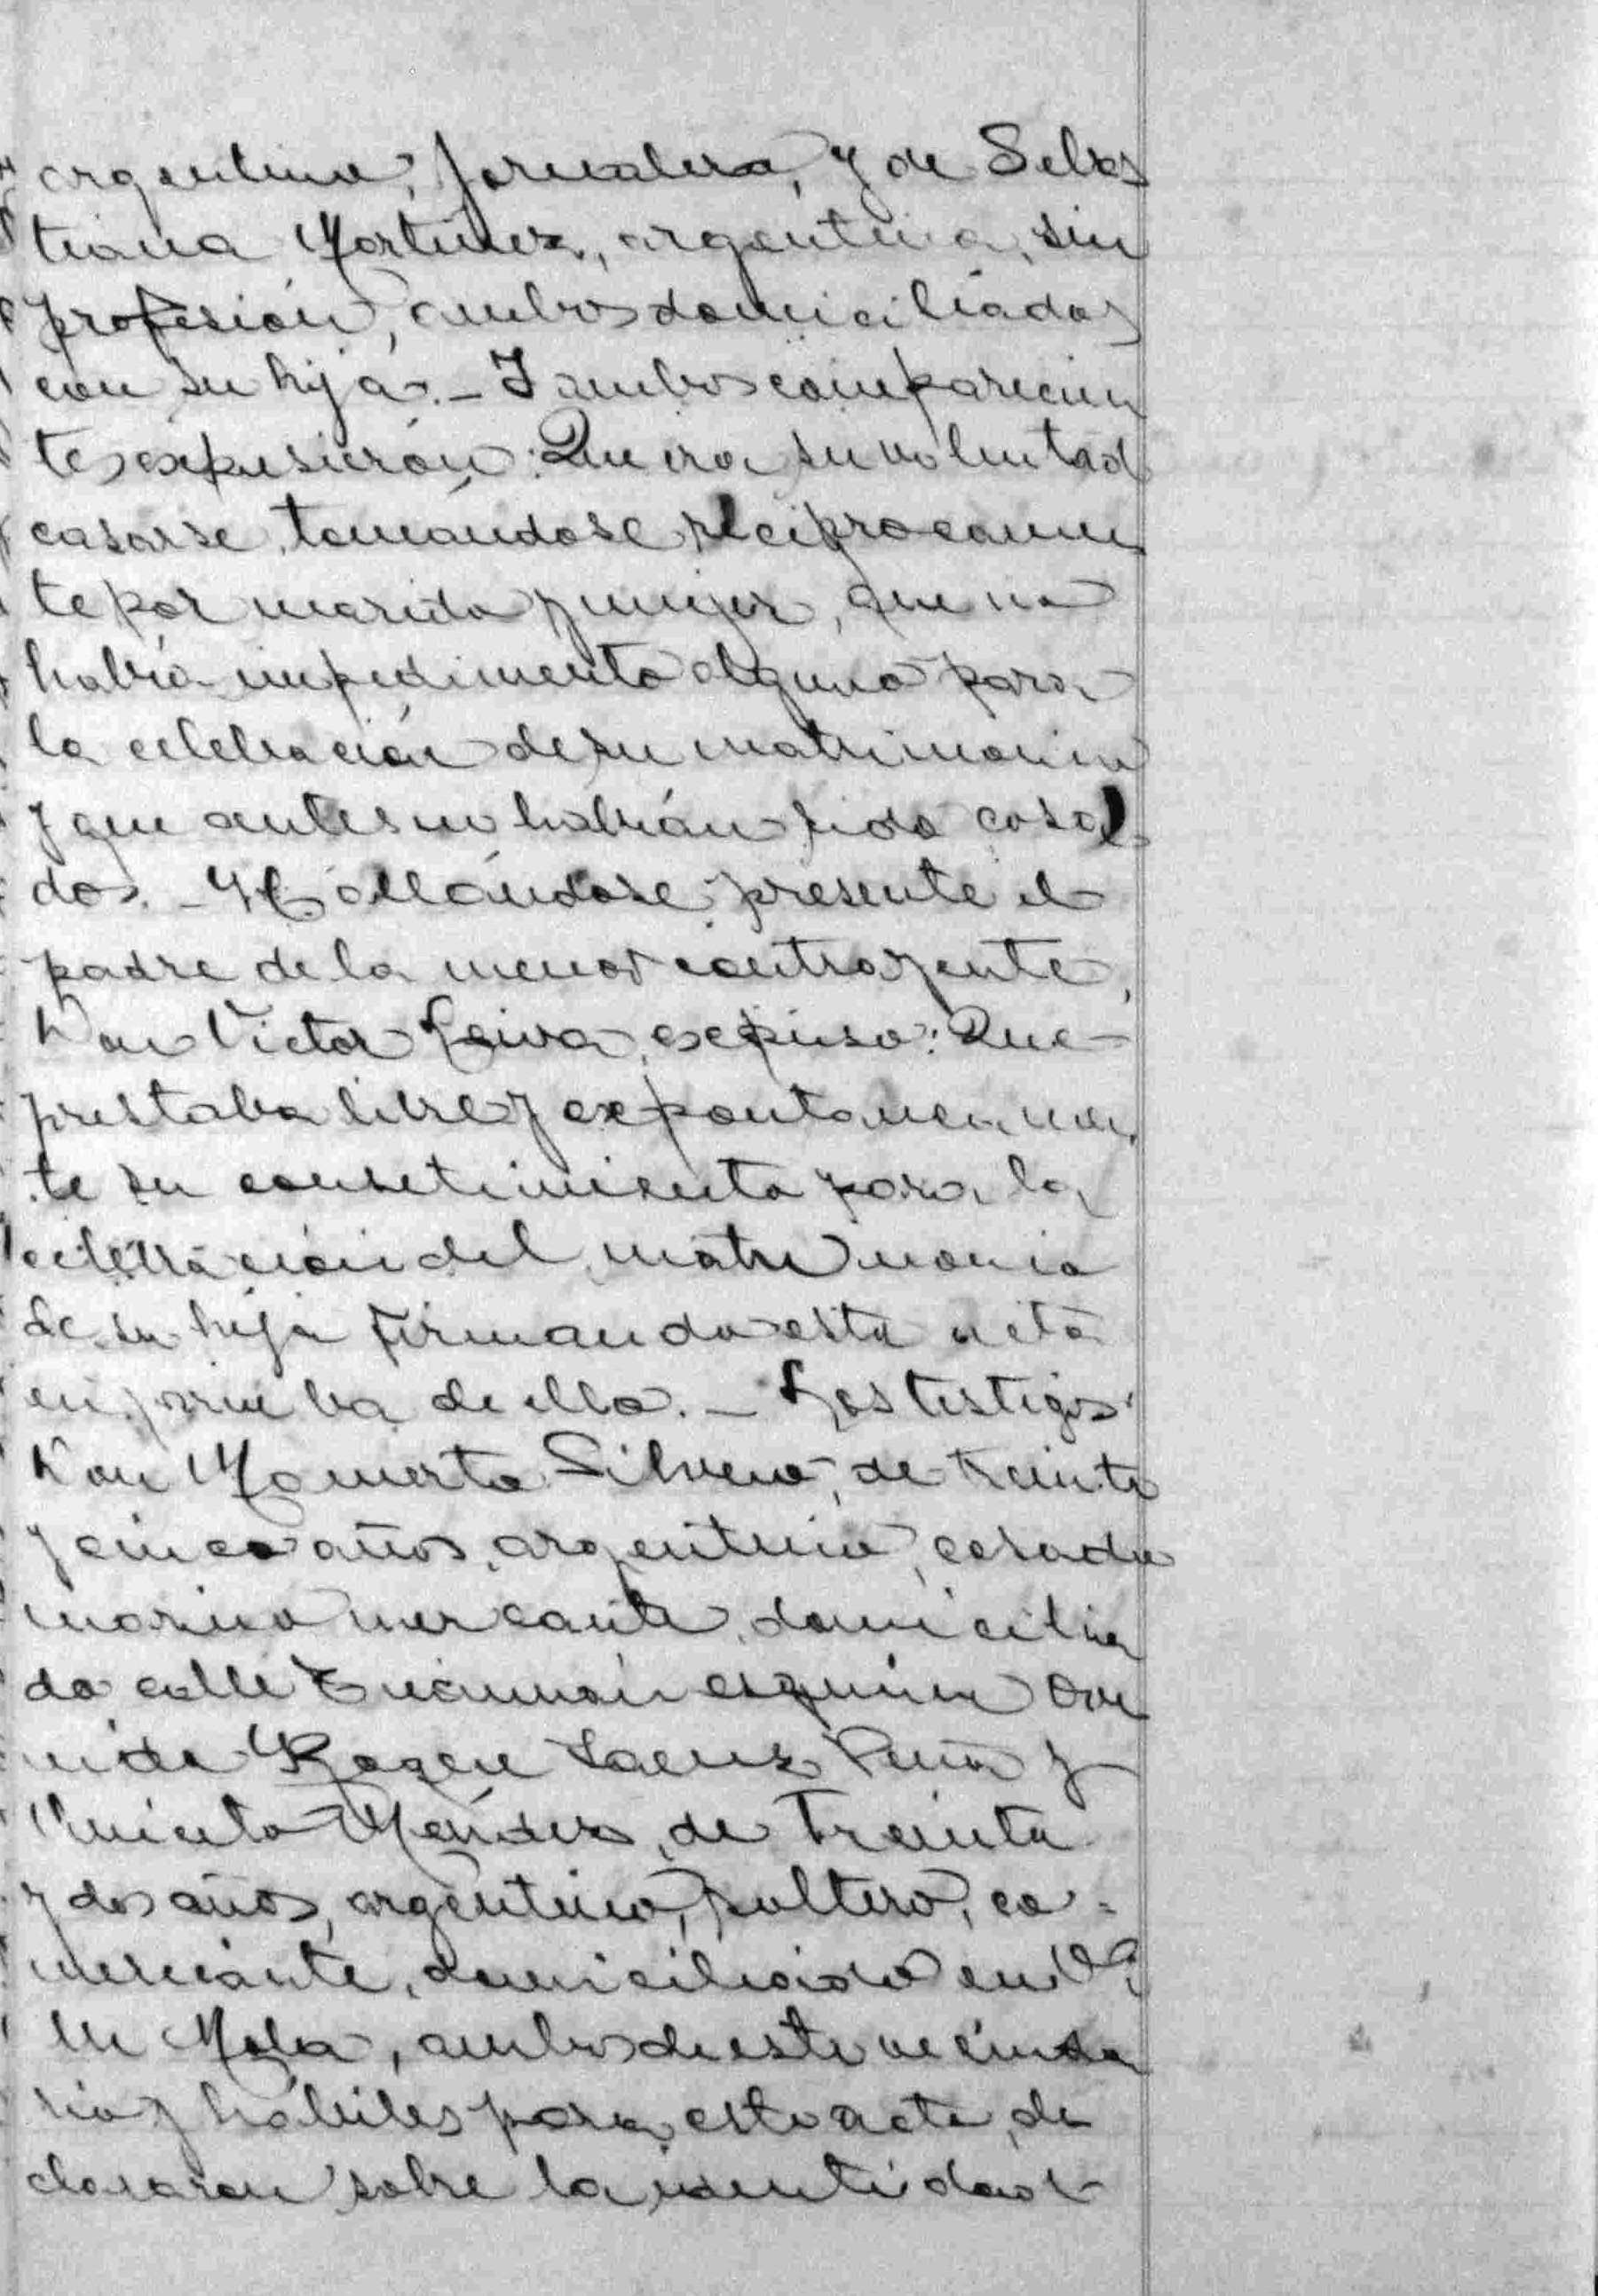 argentino, jornalero, y de Sebas
tiana Martínez, argentina, sin
profesión, ambos domiciliados
con su hija.- I ambos comparecien
tes expusierón: Que era su voluntad
casarse, tomándose reciprocamen
te por marido y mujer, que no
había impedimento alguno para
la celebración de su matrimonio
y que antes no habían sido casa
dos.- Y Hallándose presente el
padre de la menor contrayente,
Don Victor Leiva, expuso: Que
prestaba libre y expontaneamen
te su consetimiento para la
celebración del matrimonio
de su hija firmando esta acta
en prueba de ello.- Los testigos
Don Mamerto Silvera, de treinta
y cinco años, argentino, casado
marino mercante, domicilia
do calle Tucumán esquina Ave
nida Roque Saenz Peña y
Aniceto Méndez, de treinta
y dos años, argentino, soltero, co=
merciante, domiciliado en
Mola, ambos de este vecinda
rio y hábiles para este acto, de
clararon sobre la identidad